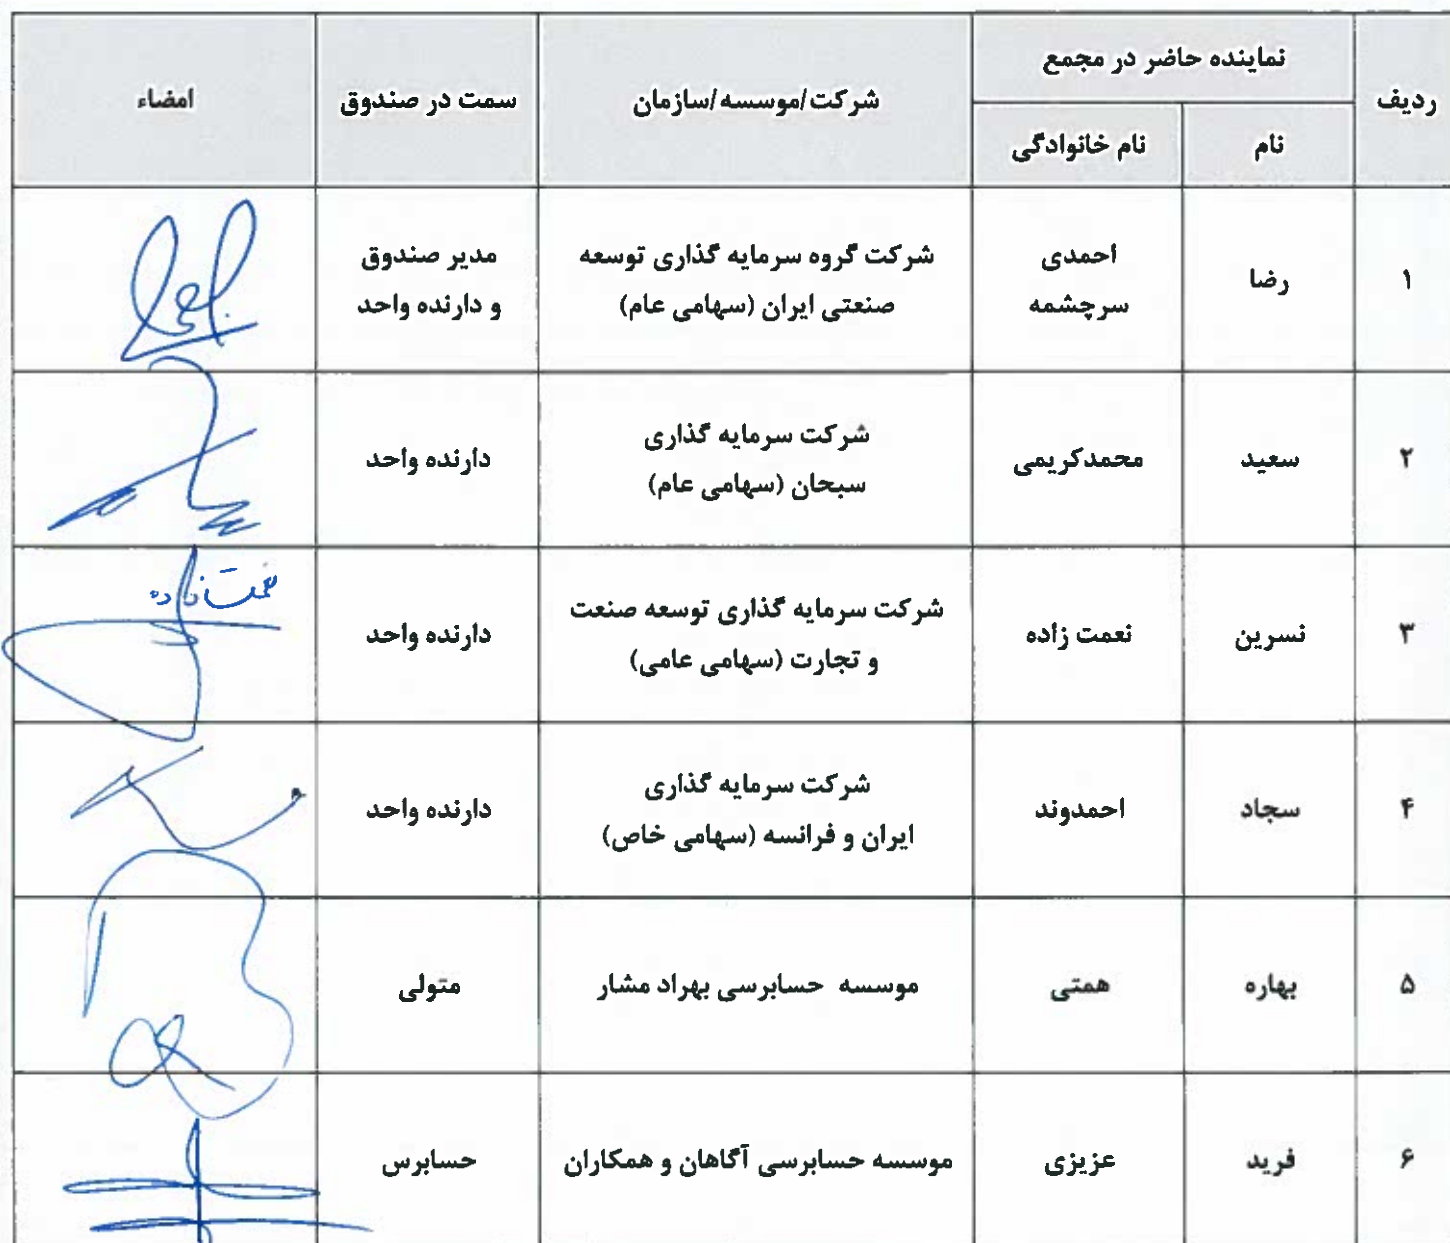 ردیف
نماینده حاضر در مجمع
نام
نام خانوادگی
شرکت/موسسه/سازمان
سمت در صندوق
امضاء
۱
رضا
احمدی
سرچشمه
شرکت گروه سرمایه گذاری توسعه
صنعتی ایران (سهامی عام)
مدیر صندوق
و دارنده واحد
۲
سعید
محمدکریمی
شرکت سرمایه گذاری
سبحان (سهامی عام)
دارنده واحد
۳
نسرین
نعمت زاده
شرکت سرمایه گذاری توسعه صنعت
و تجارت (سهامی عامی)
دارنده واحد
نعمت زاده
۴
سجاد
احمدوند
شرکت سرمایه گذاری
ایران و فرانسه (سهامی خاص)
دارنده واحد
۵
بهاره
همتی
موسسه حسابرسی بهراد مشار
متولی
۶
فرید
عزیزی
موسسه حسابرسی آگاهان و همکاران
حسابرس